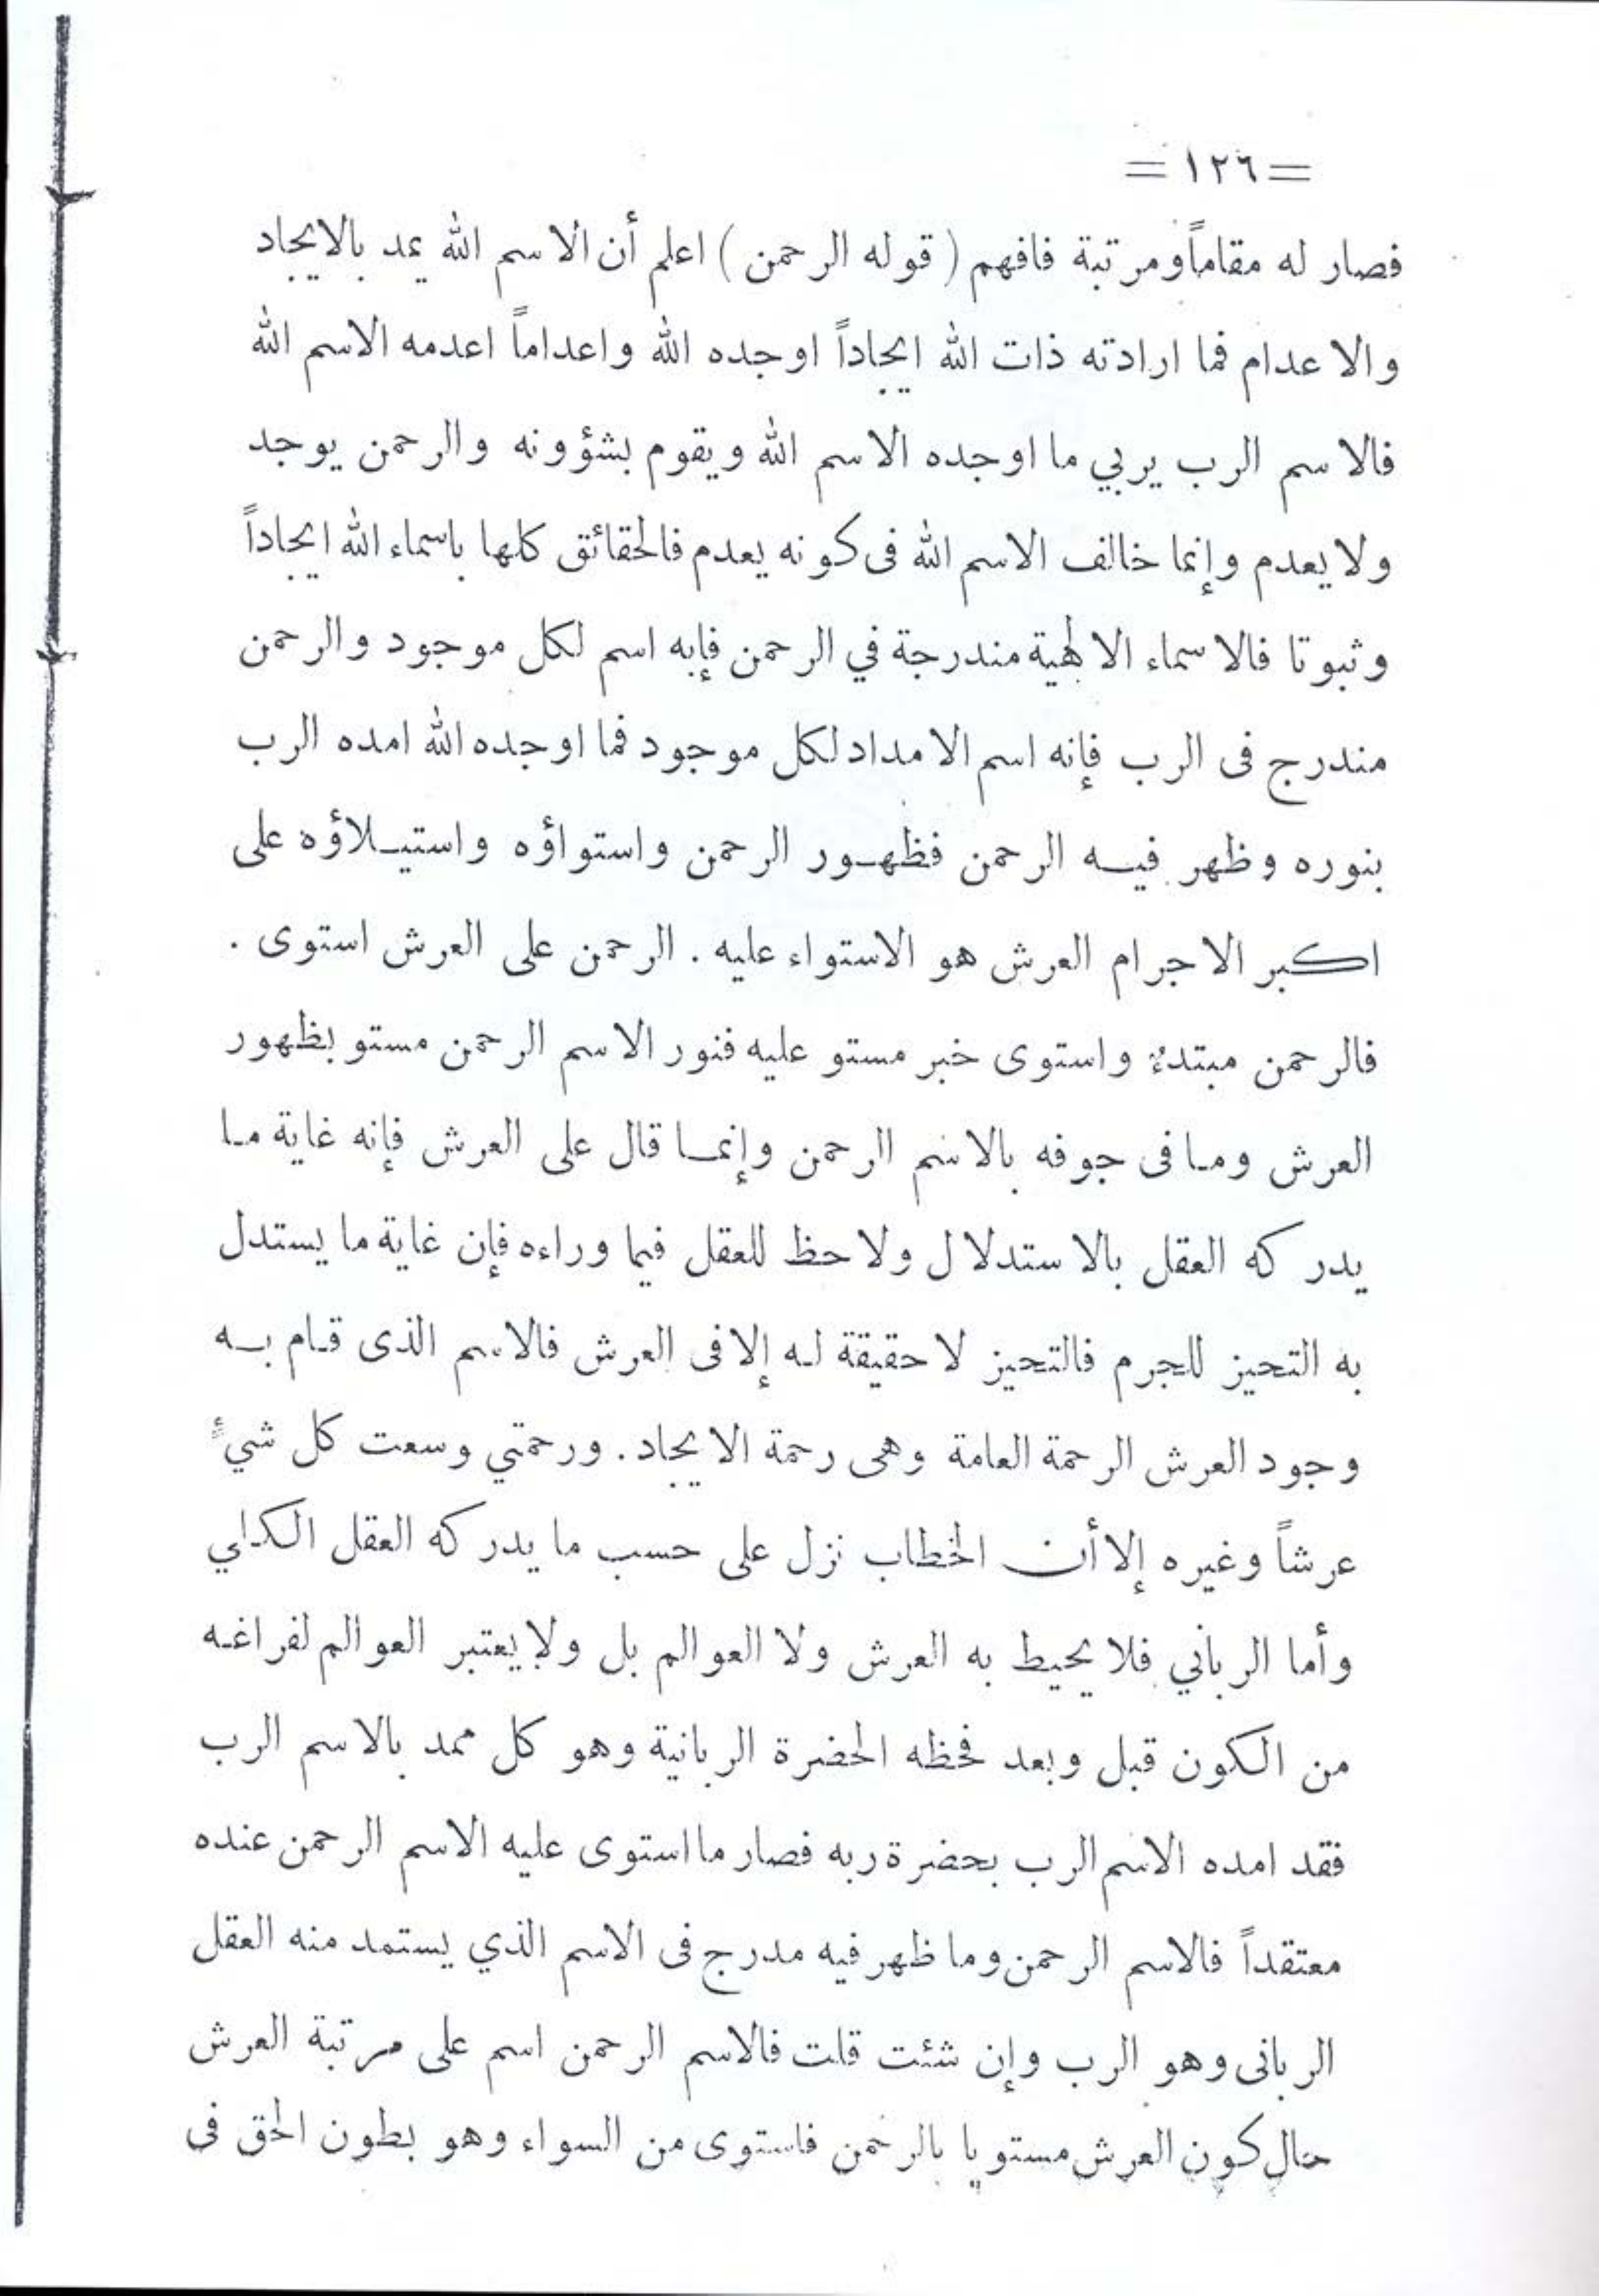 = ١٢٦ =
فصار له مقاماً ومرتبة فافهم ( قوله الرحمن ) اعلم أن الاسم الله يمد بالايجاد
والاعدام فما ارادته ذات الله ايجاداً اوجده الله واعداماً اعدمه الاسم الله
فالاسم الرب يربي ما اوجده الاسم الله ويقوم بشؤونه والرحمن يوجد
ولا يعدم وإنما خالف الاسم الله فى كونه يعدم فالحقائق كلها باسماء الله ايجاداً
وثبوتا فالاسماء الالهية مندرجة في الرحمن فإنه اسم لكل موجود والرحمن
مندرج فى الرب فإنه اسم الامداد لكل موجود فما اوجده الله امده الرب
بنوره وظهر فيـه الرحمن فظهـور الرحمن واستواؤه واستيـلاؤه على
اكبر الاجرام العرش هو الاستواء عليه . الرحمن على العرش استوى .
فالرحمن مبتدءٌ واستوى خبر مستو عليه فنور الاسم الرحمن مستو بظهور
العرش ومـا فى جوفه بالاسم الرحمن وإنمـا قال على العرش فإنه غاية مـا
يدركه العقل بالاستدلال ولا حظ للعقل فيما وراءه فإن غاية ما يستدل
به التحيز للجرم فالتحيز لا حقيقة لـه إلا فى العرش فالاسم الذى قـام بـه
وجود العرش الرحمة العامة وهى رحمة الايجاد . ورحمتي وسعت كل شيءٍ
عرشاً وغيره إلا أن الخطاب نزل على حسب ما يدركه العقل الكلي
وأما الرباني فلا يحيط به العرش ولا العوالم بل ولا يعتبر العوالم لفراغـه
من الكون قبل وبعد فحظه الحضرة الربانية وهو كل ممد بالاسم الرب
فقد امده الاسم الرب بحضرة ربه فصار ما استوى عليه الاسم الرحمن عنده
معتقداً فالاسم الرحمن وما ظهر فيه مدرج فى الاسم الذي يستمد منه العقل
الربانى وهو الرب وإن شئت قلت فالاسم الرحمن اسم على مرتبة العرش
حال كون العرش مستويا بالرحمن فاستوى من السواء وهو بطون الحق فى